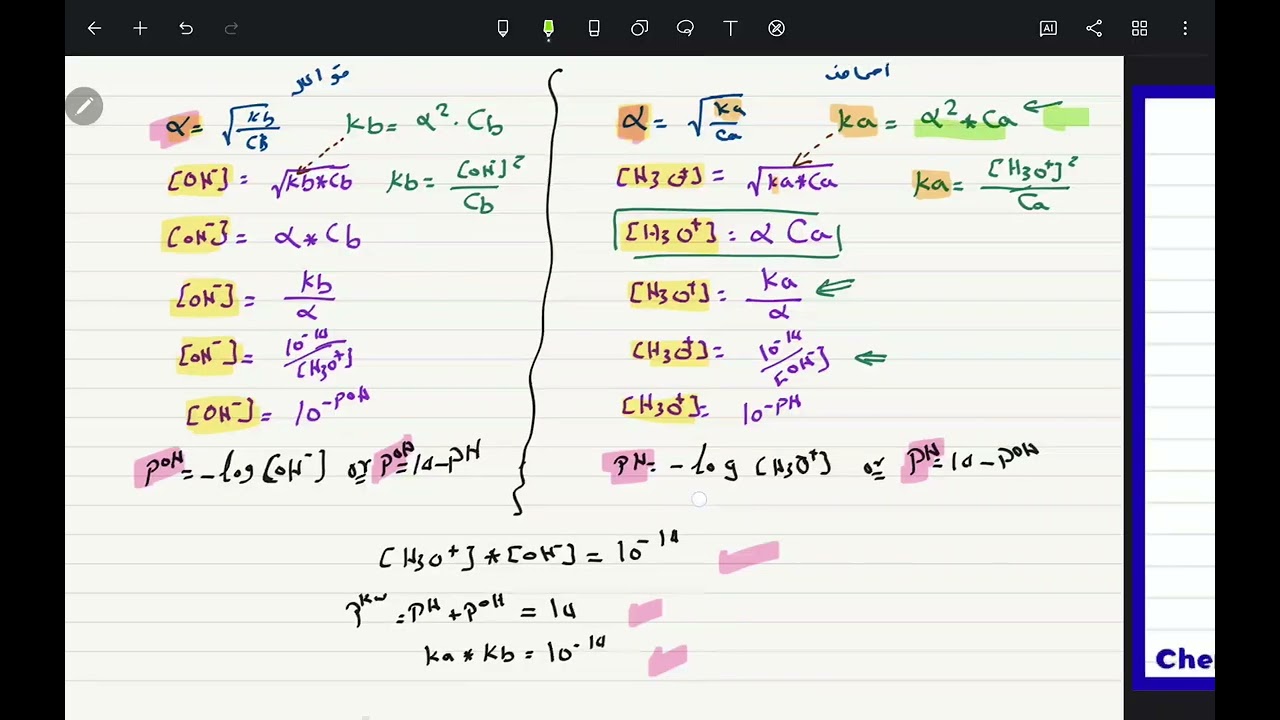 قواعد
α = √(kb/Cb) kb = α² · Cb
[OH⁻] = √kb*Cb kb = [OH⁻]²/Cb
[OH⁻] = α * Cb
[OH⁻] = kb/α
[OH⁻] = 10⁻¹⁴/[H3O⁺]
[OH⁻] = 10^-POH
POH = -log [OH⁻] or POH = 14-PH
احماض
α = √(ka/Ca) ka = α² * Ca
[H3O⁺] = √ka*Ca ka = [H3O⁺]²/Ca
[H3O⁺] = α Ca
[H3O⁺] = ka/α
[H3O⁺] = 10⁻¹⁴/[OH⁻]
[H3O⁺] = 10^-PH
PH = -log [H3O⁺] or PH = 14-POH
[H3O⁺] * [OH⁻] = 10⁻¹⁴
PKw = PH + POH = 14
ka * kb = 10⁻¹⁴
T
AI
Che